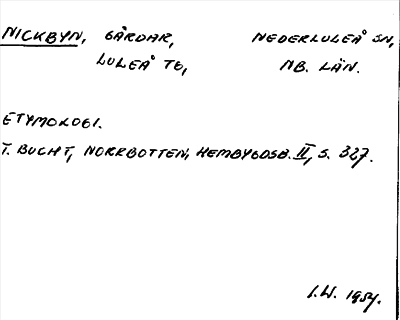 NICKBYN, GÅRDAR, NEDERLULEÅ SN,
LULEÅ TG, NB. LÄN.
ETYMOLOGI.
T. BUCHT, NORRBOTTEN, HEMBYGDSB. II, S. 327.
I.W. 1954.